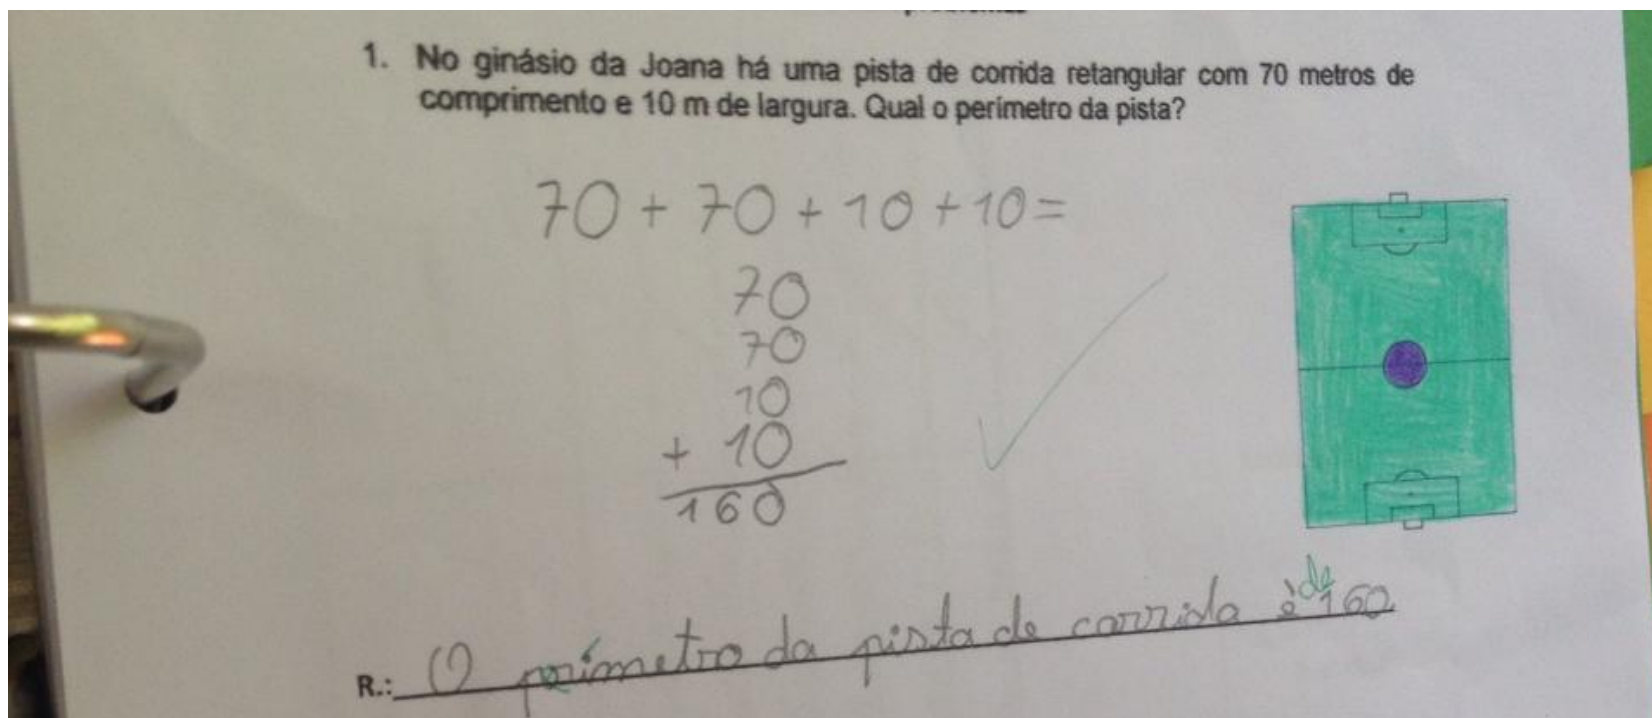 1. No ginásio da Joana há uma pista de corrida retangular com 70 metros de
comprimento e 10 m de largura. Qual o perimetro da pista?
70 + 70 + 10 + 10 =
70
70
10
+ 10
160
de
R.: O perímetro da pista de corrida è 160